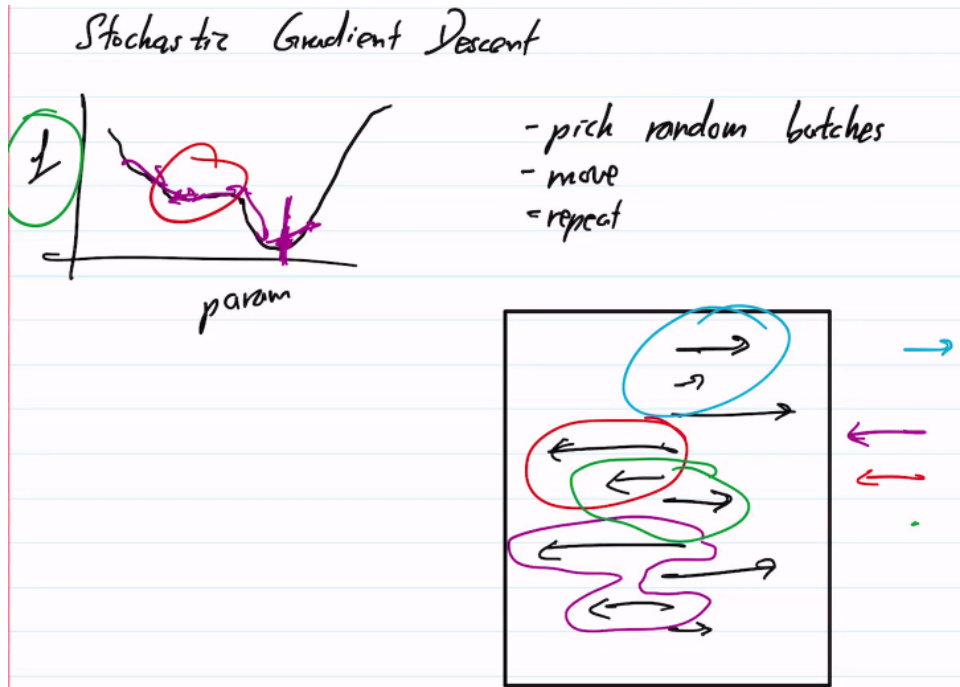 Stochastic Gradient Descent
L
- pick random batches
- move
- repeat
param